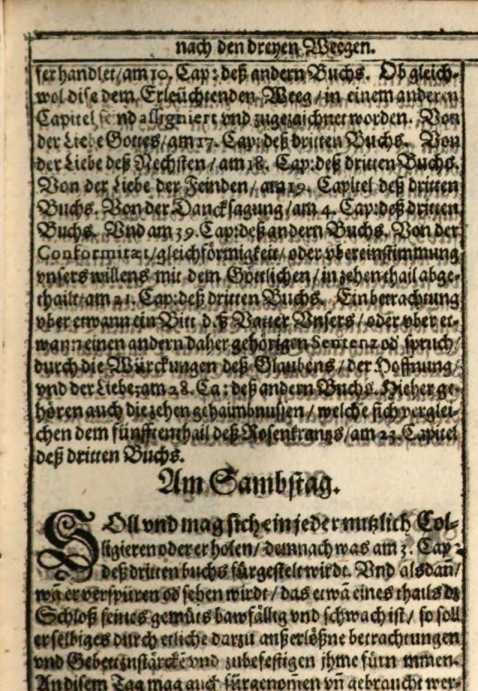 nach den dreyen Weegen.
ser handlet/am 19. Cap: deß andern Buchs. Ob gleich-
wol dise dem Erleüchtenden Weeg/in einem anderen
Capitel send assigniert vnd zugezaichnet worden. Von
der Liebe Gottes/am 17. Cap: deß dritten Buchs. Von
der Liebe deß Nechsten/am 18. Cap: deß dritten Buchs.
Von der Liebe der Feinden/am 19. Capitel deß dritten
Buchs. Von der Dancksagung/am 4. Cap: deß dritten
Buchs. Vnd am 39. Cap: deß andern Buchs. Von der
Conformitæt/gleichförmigkeit/oder vbereinstimmung
vnsers willens mit dem Göttlichen/in zehen thail abge-
thailt/am 21. Cap: deß dritten Buchs. Ein betrachtung
vber etwann ein Bitt deß Vatter Vnsers/oder vber et-
wann einen andern daher gehörigen Sentenz oď spruch/
durch die Würckungen deß Glaubens/der Hoffnung/
vnd der Liebe: am 28. Ca: deß andern Buchs. Hieher ge-
hören auch die zehen gehaimbnussen/welche sich verglei-
chen dem fünfften thail deß Rosenkrantzs/am 23. Capitel
deß dritten Buchs.
Am Sambstag.
SOll vnd mag sich ein jeder nutzlich Col-
ligieren oder erholen/demnach was am 3. Cap:
deß dritten buchs fürgestelt wirdt. Vnd alsdañ/
wa er verspüren oď sehen wirdt/das etwã eines thails dz
Schloß seines gemüts bawfällig vnd schwach ist/so soll
er selbiges durch etliche darzu außerlößne betrachtungen
vnd Gebett zustärcke vnd zubefestigen ihme fürnemmen.
An disem Tag mag auch fürgenom̃en vñ gebraucht wer-